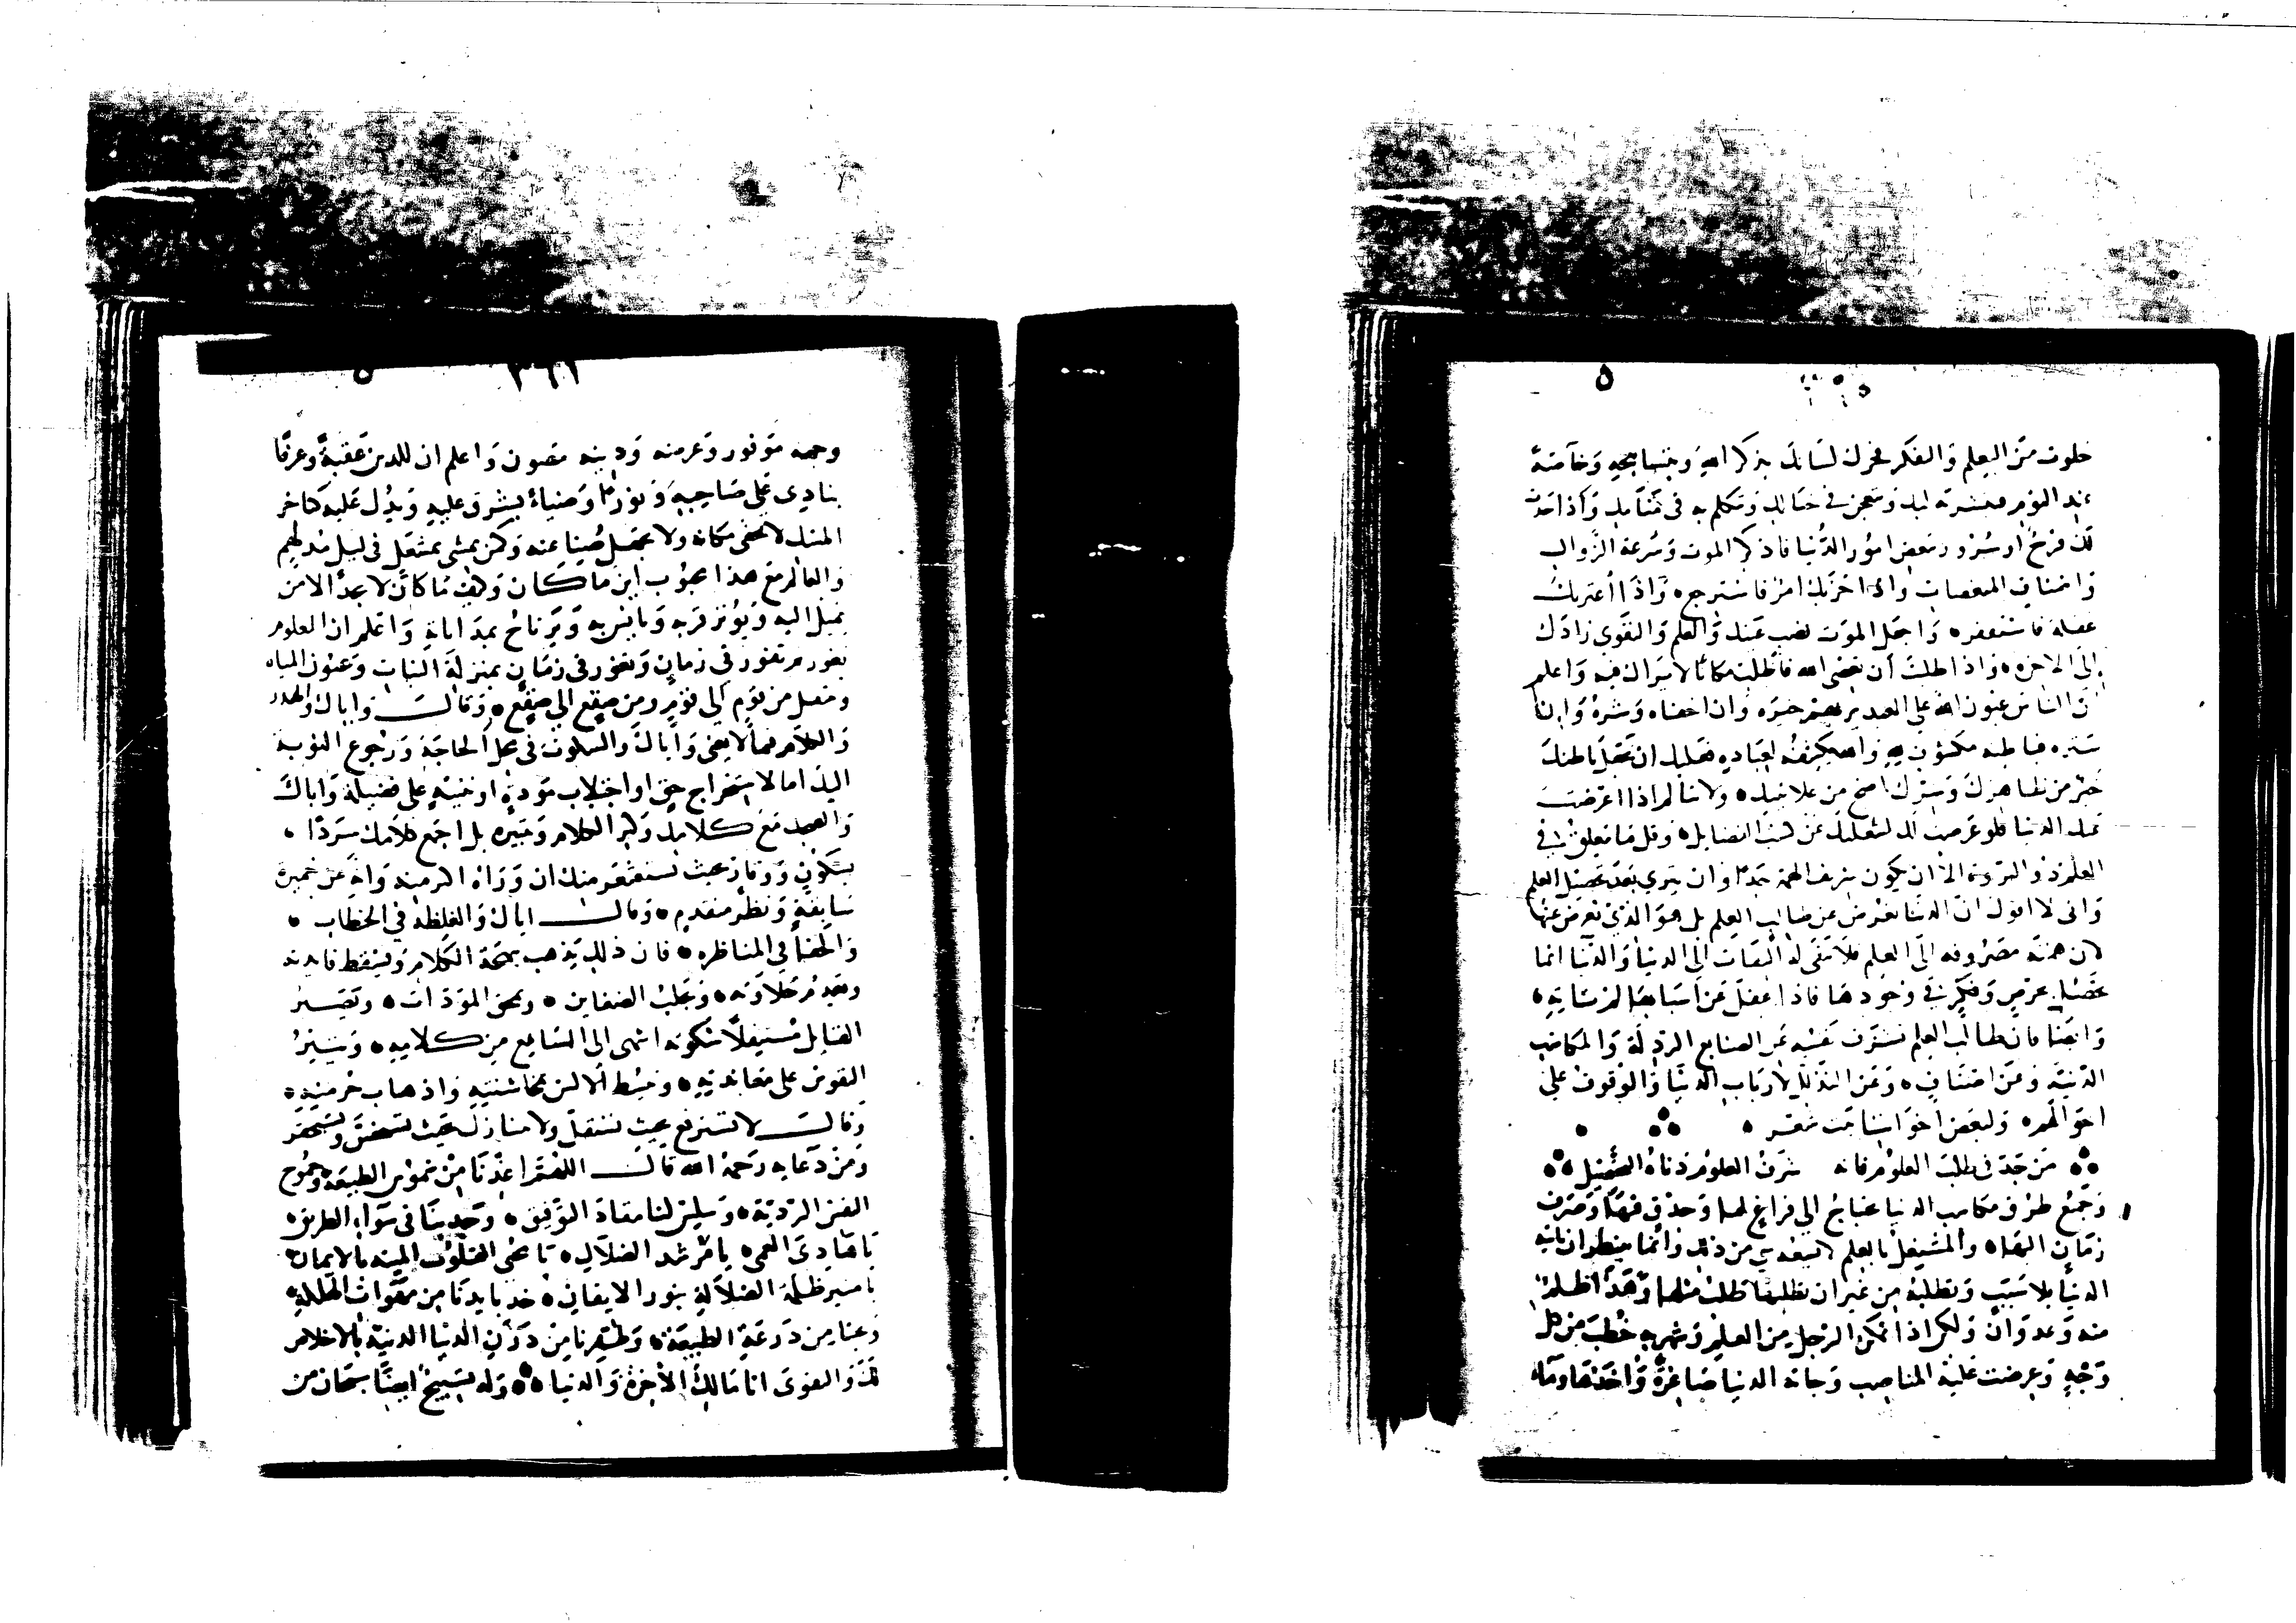 ٥
خلوت من العلم والفكر فحرك لسانك بذكر الله وبتسابيحه وخاصة
عند النوم فيتشربه لبك ويتعجن في خيالك وتتكلم به في منامك واذا حدث
لك فرح او سرور ببعض امور الدنيا فاذكر الموت وسرعة الزوال
واصناف المنغصات واذا احزنك امر فاسترجع واذا اعترتك
غفلة فاستغفر واجعل الموت نصب عينك والعلم والتقوى زادك
الى الاخره واذا اردت ان تعصى الله فاطلب مكانا لا يراك فيه واعلم
ان الناس عيون الله على العبد يريهم خيره وان اخفاه وشره وان
ستره فباطنه مكشوف لله والله يكشفه لعباده فعليك ان تجعل باطنك
خير من ظاهرك وسرك اضح من علانيتك ولا تتالم اذا اعرضت
عنك الدنيا فلو عرضت لك لشغلتك عن كسب الفضايل وقل ما يتعمق في
العلم ذو الثروة الا ان يكون شريف الهمة جدا وان يثري بعد تحصيل العلم
وانى لا اقول ان الدنيا تعرض عن طالب العلم بل هو الذي يعرض عنها
لان همته مصروفه الى العلم فلا يبقى له التفات الى الدنيا والدنيا انما
تحصل بحرص وفكر في وجوهها فاذا غفل عن اسبابها لم تاته
وايضا فان طالب العلم تشرف نفسه عن الصنايع الرذلة والمكاسب
الدنية وعن اصناف وعن التذلل لارباب الدنيا والوقوف على
ابوابهم ولبعض اخواننا بيت شعر
من جد في طلب العلوم فاته شرف العلوم دناة التحصيل
وجميع طرق مكاسب الدنيا تحتاج الى فراغ لها وحذق فيها وصرف
زمان اليها والمشتغل بالعلم لا يسعه شي من ذلك وانما ينتظر ان تاتيه
الدنيا بلا سبب وتطلبه من غير ان يطلبها طلب مثلها وهذا ظلم
منه وعدوان ولكن اذا تمكن الرجل من العلم وشهر به خطب من كل
وجه وعرضت عليه المناصب وجاته الدنيا صاغرة واخذها وماء
٣٦١
وجهه موفور وعرضه ودينه مصون واعلم ان للدين عقبة وعرفا
ينادي على صاحبه ونورا وضياء يشرق عليه ويدل عليه كتاجر
المسك لا يخفى مكانه ولا تجهل بضاعته وكمن يمشي بمشعل في ليل مدلهم
والعالم مع هذا محبوب اين ما كان وكيف ما كان لا يجد الا من
يميل اليه ويوثر قربه ويانس به ويرتاح بمداناته واعلم ان العلوم
تغور ثم تفور في زمان وتغور في زمان بمنزلة النبات وعيون المياه
وتنتقل من قوم الى قوم ومن صقع الى صقع وقال واياك والهذر
والكلام فيما لا يعني واياك والسكوت في محل الحاجة ورجوع النوبة
اليك اما لاستخراج حق او اجتلاب مودة او تنبيه على فضيلة واياك
والضحك مع كلامك وكثرة الكلام وتبتير بل اجمع كلامك سردا
بسكون ووقار بحيث يستشعر منك ان وراه اكثر منه وانه عن خميرة
سابقة ونظر متقدم وقال اياك والغلظة في الخطاب
والجفا في المناظره فان ذلك يذهب ببهجة الكلام ويسقط فايدته
ويعدم حلاوته ويجلب الضغاين ويمحق المودات ويصير
القايل مستثقلا سكوته اشهى الى السامع من كلامه ويثير
النفوس على معاندته ويبسط الالسن بمخاشنته واذهاب حرمته
وقال لا تترفع بحيث تستثقل ولا تتنازل بحيث تستخس وتستحقر
ومن دعايه رحمه الله قال اللهم اعذنا من شموس الطبيعة وجموح
النفس الردية وسلس لنا مقاد التوفيق وخذ بنا في سواء الطريق
يا هادي العمي يا مرشد الضلال يا محيي القلوب الميته بالايمان
يا منير ظلمة الضلالة بنور الايقان خذ بايدينا من مهواة الهلكة
ونجنا من ردغة الطبيعة وطهرنا من درن الدنيا الدنية بالاخلاص
لك والتقوى انك مالك الاخرة والدنيا وله تسبيح ايضا سبحان من